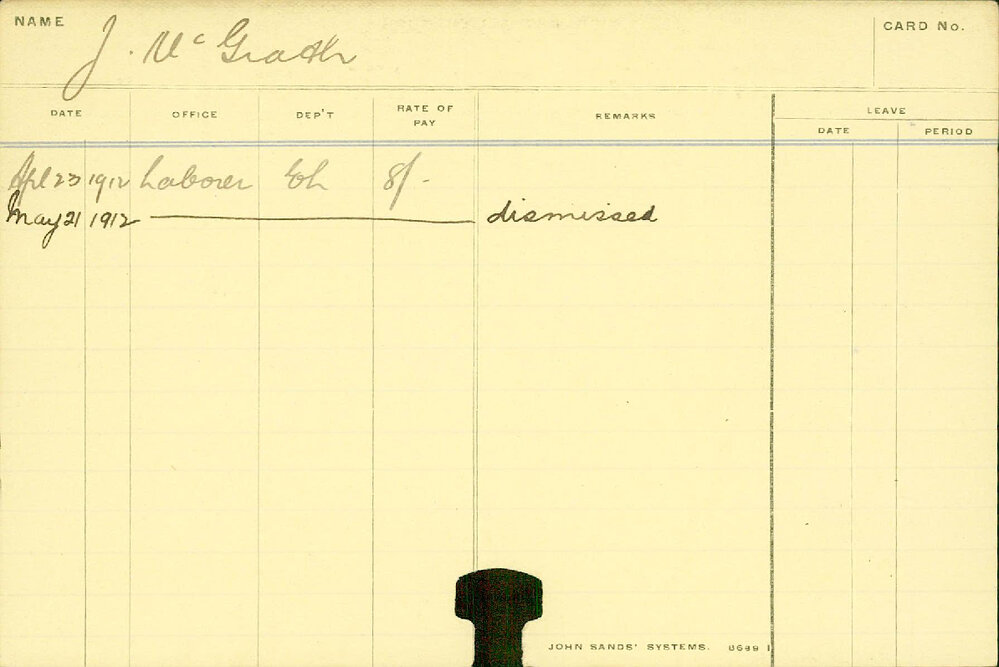 NAME J. McGrath CARD No.
DATE OFFICE DEP'T RATE OF PAY REMARKS LEAVE
DATE PERIOD
Apl 23 1912 Laborer 8/-
May 21 1912 dismissed
JOHN SANDS' SYSTEMS.